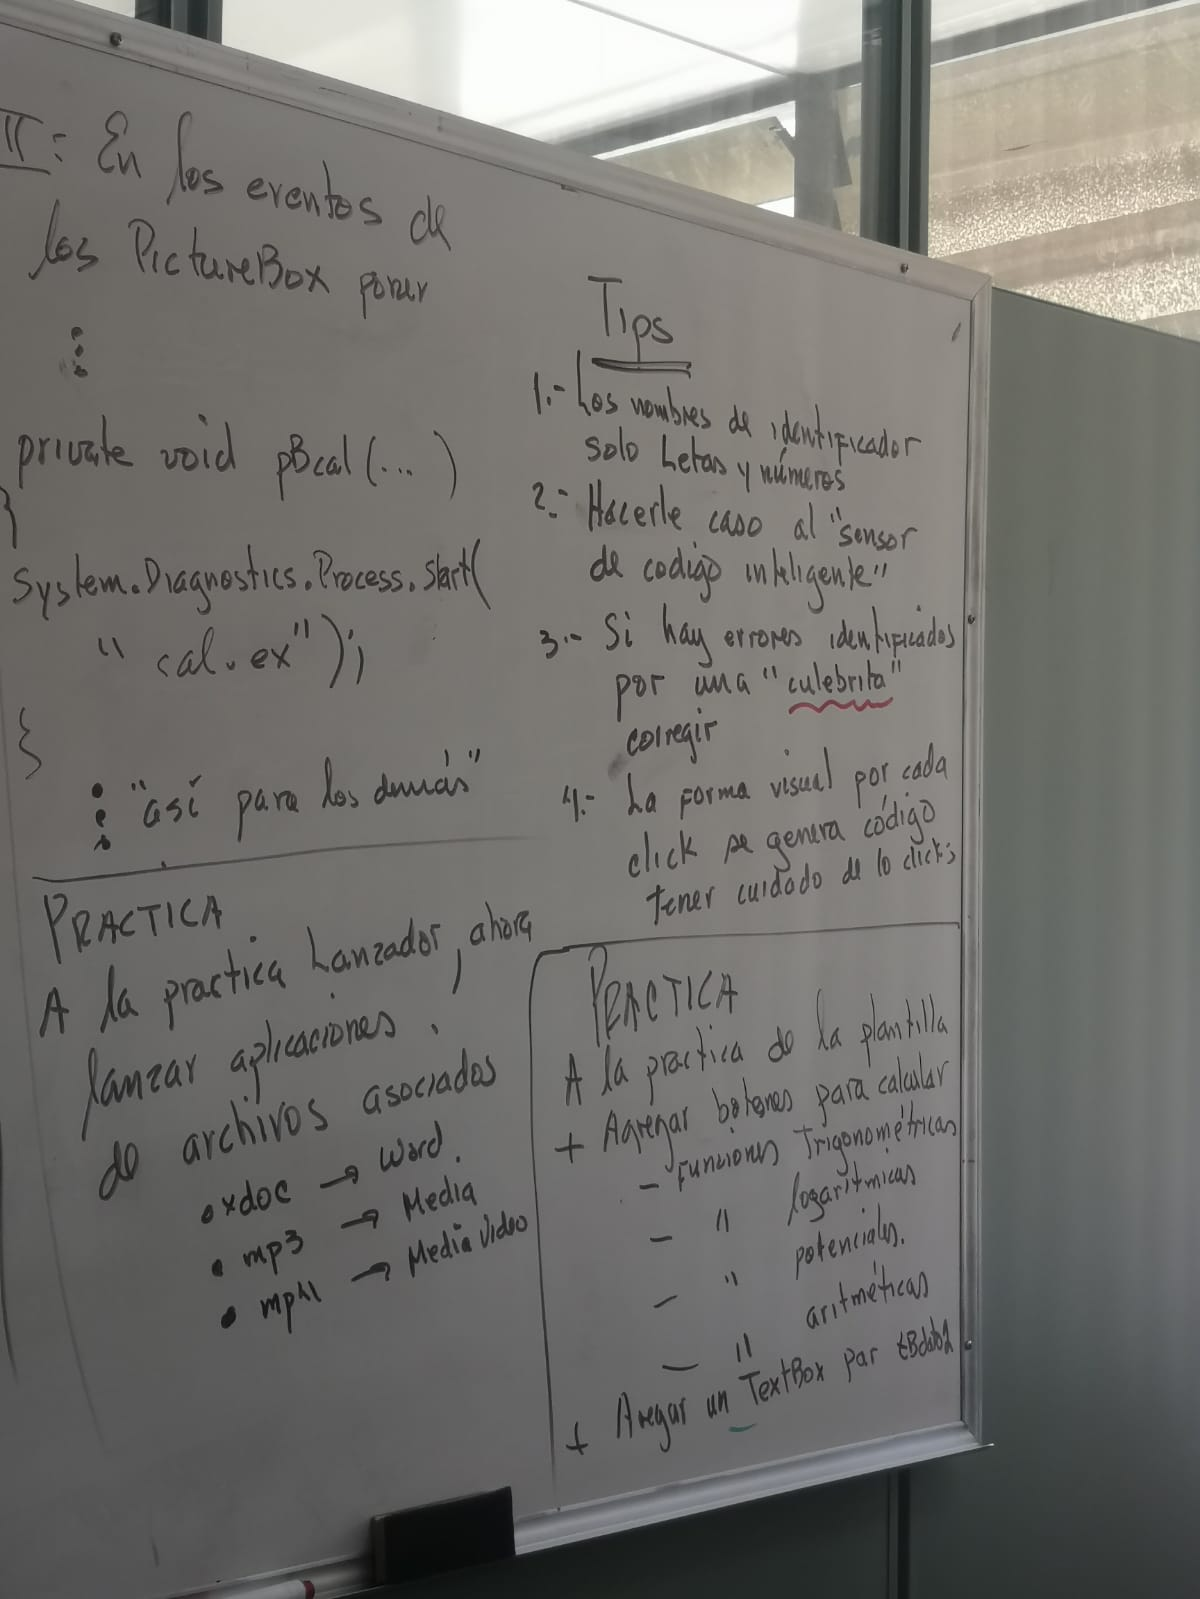 II: En los eventos de
los PictureBox poner
private void pBcal(...)
}
System.Diagnostics.Process.Start(
"cal.ex");
{
"así para los demás"
PRACTICA
A la practica Lanzador, ahora
lanzar aplicaciones.
de archivos asociados
• xdoc → Word.
• mp3 → Media
• mp4 → Media Video
Tips
1.- Los nombres de identificador
solo Letas y números
2.- Hacerle caso al "sensor
de codigo inteligente"
3.- Si hay errores identificados
por una "culebrita"
corregir
4.- La forma visual por cada
click se genera código
tener cuidado de lo clicks
PRACTICA
A la practica de la plantilla
+ Agregar botones para calcular
- Funciones Trigonométricas
- " logaritmicas
- " potenciales.
- " aritméticas
+ Aregar un TextBox par